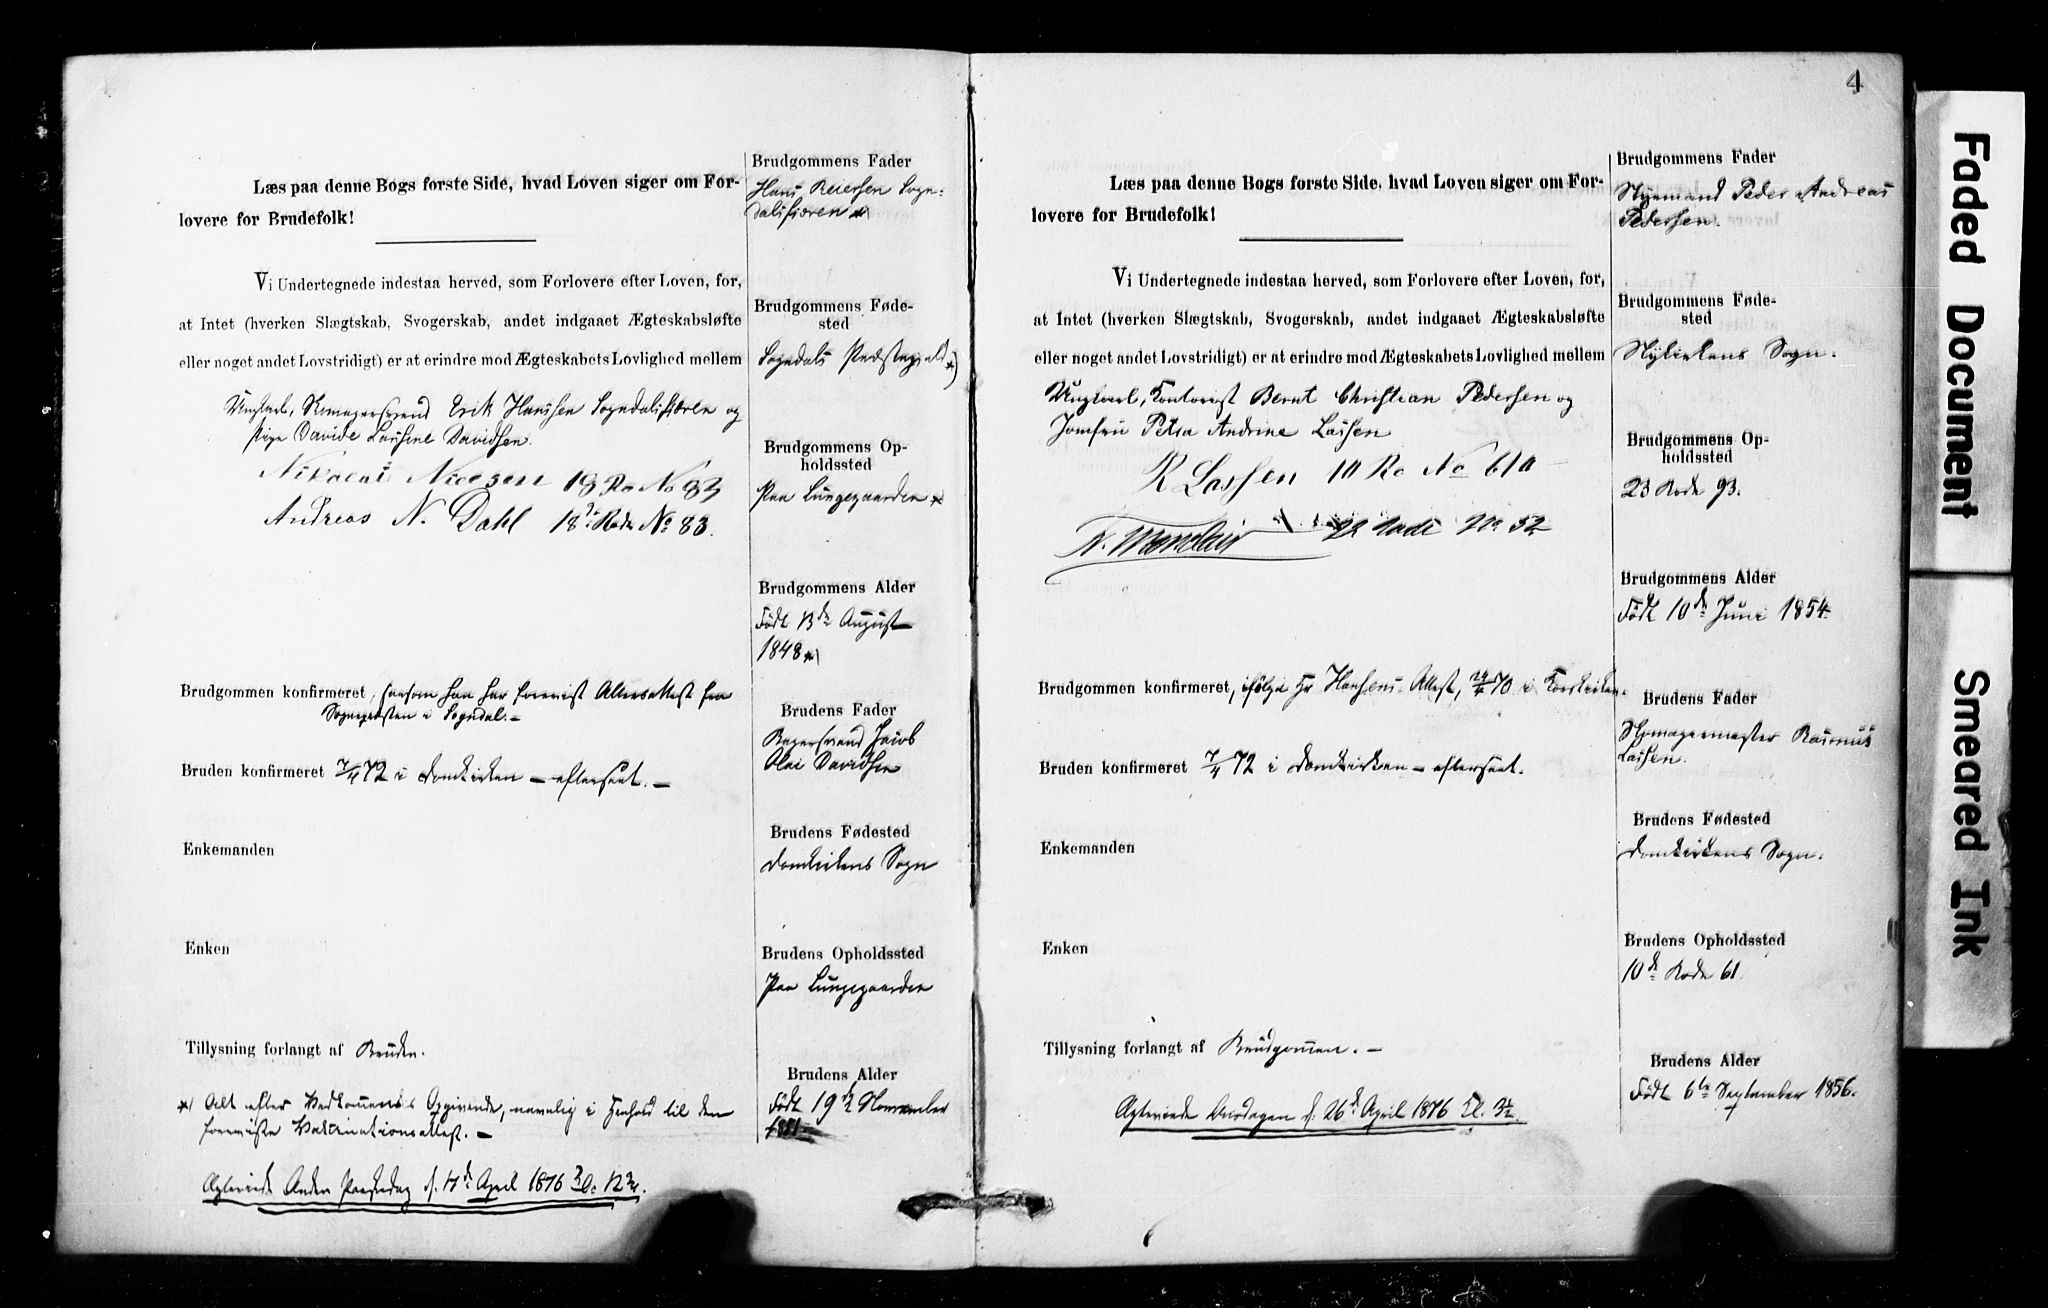 Læs paa denne Bogs første Side, hvad Loven siger om For-
lovere for Brudefolk!
Vi Undertegnede indestaa herved, som Forlovere efter Loven, for,
at Intet (hverken Slægtskab, Svogerskab, andet indgaaet Ægteskabsløfte
eller noget andet Lovstridigt) er at erindre mod Ægteskabets Lovlighed mellem
Ungkarl, Skomagersvend Erik Hanssen Sogndalsfjøren og
Pige Davide Laurine Davidsen.
Nikolai Nielsen 18 Ro No 83
Andreas N. Dahl 18de Rode No 83.
Brudgommen konfirmeret, saasom han har forevist Altersattest fra
Sognepresten i Sogndal. –
Bruden konfirmeret 7/4 72 i Domkirken – efterseet. –
Enkemanden
Enken
Tillysning forlangt af Bruden.
*) Alt efter Vedkommendes Opgivende, navnlig i Henhold til den
foreviste Vaktinationsattest. –
Ægteviede Anden Paaskedag d. 17de April 1876 Kl. 12 3/4.
Brudgommens Fader
Hans Reiersen Sogn-
dalsfjøren *)
Brudgommens Føde-
sted
Sogndals Præstegjeld *)
Brudgommens Op-
holdssted
Paa Lungegaarden *
Brudgommens Alder
Født 13de August
1848 *)
Brudens Fader
Bagersvend Jacob
Olai Davidsen
Brudens Fødested
Domkirkens Sogn
Brudens Opholdssted
Paa Lungegaarden
Brudens Alder
Født 19de November
1851
4
Læs paa denne Bogs første Side, hvad Loven siger om For-
lovere for Brudefolk!
Vi Undertegnede indestaa herved, som Forlovere efter Loven, for,
at Intet (hverken Slægtskab, Svogerskab, andet indgaaet Ægteskabsløfte
eller noget andet Lovstridigt) er at erindre mod Ægteskabets Lovlighed mellem
Ungkarl, Kontorist Bernt Christian Pedersen og
Jomfru Petra Andrine Lassen
R Lassen 10 Ro No 61a
22 Rode No 52
Brudgommen konfirmeret, ifølge Hr Hansens Attest, 24/4 70 i Korskirken.
Bruden konfirmeret 7/4 72 i Domkirken – efterseet.
Enkemanden
Enken
Tillysning forlangt af Brudgommen. –
Ægteviede Onsdagen d. 26de April 1876 Kl. 3 1/2.
Brudgommens Fader
Styrmand Peder Andreas
Pedersen.
Brudgommens Føde-
sted
Nykirkens Sogn.
Brudgommens Op-
holdssted
23 Rode 93.
Brudgommens Alder
Født 10de Juni 1854.
Brudens Fader
Skomagermester Rasmus
Lassen.
Brudens Fødested
Domkirkens Sogn.
Brudens Opholdssted
10de Rode 61.
Brudens Alder
Født 6te September 1856.
Faded Document
Smeared Ink